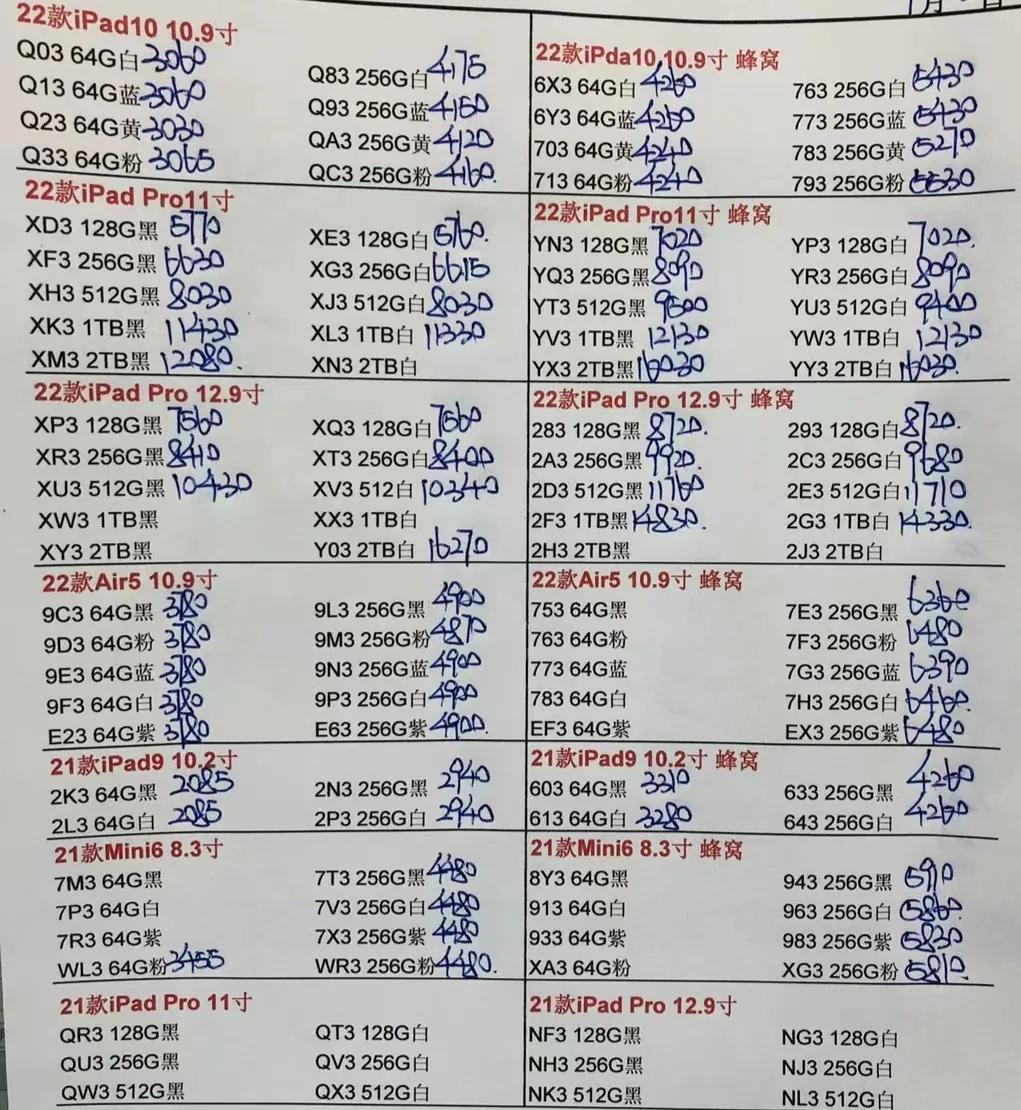 22款iPad10 10.9寸
Q03 64G白 3060
Q83 256G白 4175
Q13 64G蓝 3060
Q93 256G蓝 4150
Q23 64G黄 3030
QA3 256G黄 4120
Q33 64G粉 3065
QC3 256G粉 4160.
22款iPda10 10.9寸 蜂窝
6X3 64G白 4260
763 256G白 5430
6Y3 64G蓝 4260
773 256G蓝 5430
703 64G黄 4240
783 256G黄 5270
713 64G粉 4240
793 256G粉
22款iPad Pro11寸
XD3 128G黑 5770
XE3 128G白 5760.
XF3 256G黑 6630
XG3 256G白 6615
XH3 512G黑 8030
XJ3 512G白 8030
XK3 1TB黑 11430
XL3 1TB白 11330
XM3 2TB黑 12080.
XN3 2TB白
22款iPad Pro11寸 蜂窝
YN3 128G黑 7020
YP3 128G白 7020.
YQ3 256G黑 8090
YR3 256G白 8090
YT3 512G黑 9500
YU3 512G白 9400
YV3 1TB黑 12130
YW3 1TB白 12130
YX3 2TB黑 16030
YY3 2TB白 16030.
22款iPad Pro 12.9寸
XP3 128G黑 7560
XQ3 128G白 7560
XR3 256G黑 8410
XT3 256G白 8400
XU3 512G黑 10430
XV3 512白 10340
XW3 1TB黑
XX3 1TB白
XY3 2TB黑
Y03 2TB白 16270
22款iPad Pro 12.9寸 蜂窝
283 128G黑 8720.
293 128G白 8720.
2A3 256G黑 9920.
2C3 256G白 9680
2D3 512G黑 11760
2E3 512G白 11710
2F3 1TB黑 14830.
2G3 1TB白 14330.
2H3 2TB黑
2J3 2TB白
22款Air5 10.9寸
9C3 64G黑 3780
9L3 256G黑 4900
9D3 64G粉 3780
9M3 256G粉 4870
9E3 64G蓝 3780
9N3 256G蓝 4900
9F3 64G白 3780
9P3 256G白 4900
E23 64G紫 3780
E63 256G紫 4900.
22款Air5 10.9寸 蜂窝
753 64G黑
7E3 256G黑 6360
763 64G粉
7F3 256G粉 6480
773 64G蓝
7G3 256G蓝 6390
783 64G白
7H3 256G白 6460
EF3 64G紫
EX3 256G紫 6480
21款iPad9 10.2寸
2K3 64G黑 2085
2N3 256G黑 2940
2L3 64G白 2085
2P3 256G白 2940
21款iPad9 10.2寸 蜂窝
603 64G黑 3310
633 256G黑 4260
613 64G白 3280
643 256G白 4260
21款Mini6 8.3寸
7M3 64G黑
7T3 256G黑 4480
7P3 64G白
7V3 256G白 4480
7R3 64G紫
7X3 256G紫 4480
WL3 64G粉 3455
WR3 256G粉 4480.
21款Mini6 8.3寸 蜂窝
8Y3 64G黑
943 256G黑 5910
913 64G白
963 256G白 5860
933 64G紫
983 256G紫 5830
XA3 64G粉
XG3 256G粉 5810.
21款iPad Pro 11寸
QR3 128G黑
QT3 128G白
QU3 256G黑
QV3 256G白
QW3 512G黑
QX3 512G白
21款iPad Pro 12.9寸
NF3 128G黑
NG3 128G白
NH3 256G黑
NJ3 256G白
NK3 512G黑
NL3 512G白